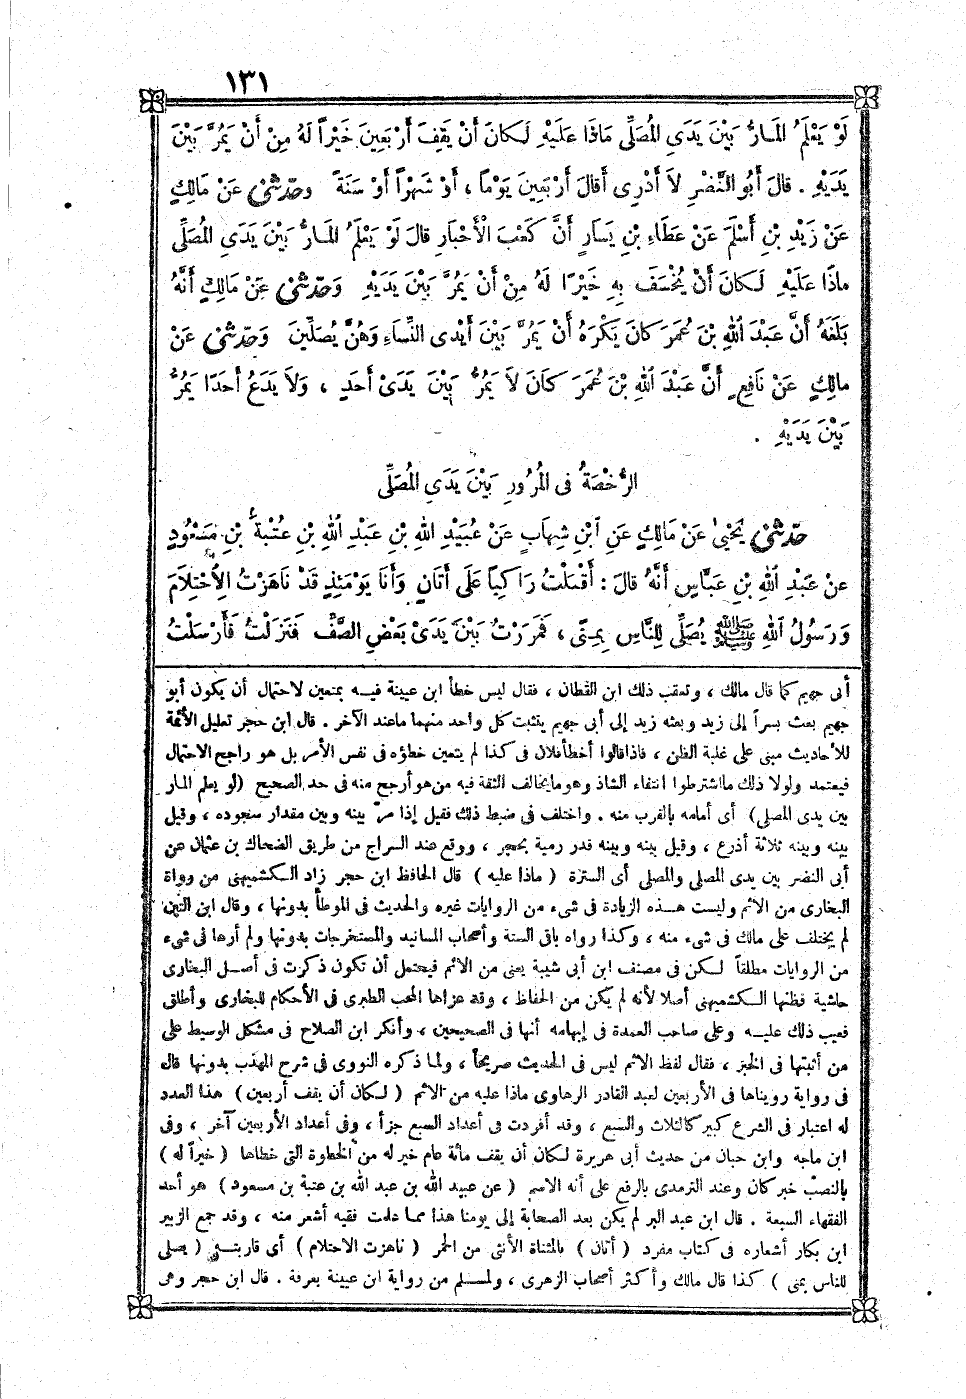 ١٣١
لَوْ يَعْلَمُ الْمَارُّ بَيْنَ يَدَىِ الْمُصَلِّى مَاذَا عَلَيْهِ لَكَانَ أَنْ يَقِفَ أَرْبَعِينَ خَيْراً لَهُ مِنْ أَنْ يَمُرَّ بَيْنَ
يَدَيْهِ . قالَ أَبُو النَّضْرِ لاَ أَدْرِى أَقالَ أَرْبَعِينَ يَوْماً ، أَوْ شَهْراً أَوْ سَنَةً وحدّثنى عَنْ مَالِكٍ
عَنْ زَيْدِ بْنِ أَسْلَمَ عَنْ عَطَاءِ بْنِ يَسَارٍ أَنَّ كَعْبَ الْأَحْبَارِ قالَ لَوْ يَعْلَمُ الْمَارُّ بَيْنَ يَدَىِ الْمُصَلِّى
ماذَا عَلَيْهِ لَكَانَ أَنْ يُخْسَفَ بِهِ خَيْرًا لَهُ مِنْ أَنْ يَمُرَّ بَيْنَ يَدَيْهِ وَحدّثنى عَنْ مَالِكٍ أَنَّهُ
بَلَغَهُ أَنَّ عَبْدَ اللهِ بْنَ عُمَرَ كَانَ يَكْرَهُ أَنْ يَمُرَّ بَيْنَ أَيْدِى النِّسَاءِ وَهُنَّ يُصَلِّينَ وَحدّثنى عَنْ
مالِكٍ عَنْ نَافِعٍ أَنَّ عَبْدَ اللهِ بْنَ عُمَرَ كَانَ لاَ يَمُرُّ بَيْنَ يَدَىْ أَحَدٍ ، وَلاَ يَدَعُ أَحَدًا يَمُرُّ
بَيْنَ يَدَيْهِ .
الرُّخْصَةُ فى الْمُرُورِ بَيْنَ يَدَىِ الْمُصَلِّى
حدّثنى يَحْيىٰ عَنْ مَالِكٍ عَنِ ابْنِ شِهَابٍ عَنْ عُبَيْدِ اللهِ بْنِ عَبْدِ اللهِ بْنِ عُتْبَةَ بْنِ مَسْعُودٍ
عنْ عَبْدِ اللهِ بْنِ عَبَّاسٍ أَنَّهُ قالَ : أَقْبَلْتُ رَاكِباً عَلَى أَتَانٍ وَأَنَا يَوْمَئِذٍ قَدْ نَاهَزْتُ الِاحْتِلَامَ
وَرَسُولُ اللهِ ﷺ يُصَلِّى لِلنَّاسِ بِمِنًى ، فَمَرَرْتُ بَيْنَ يَدَىْ بَعْضِ الصَّفِّ فَنَزَلْتُ فَأَرْسَلْتُ
أبى جهيم كما قال مالك ، وتعقب ذلك ابن القطان ، فقال ليس خطأ ابن عيينة فيـه بمتعين لاحتمال أن يكون أبو
جهيم بعث بسراً إلى زيد وبعثه زيد إلى أبى جهيم يتثبت كل واحد منهما ماعند الآخر . قال ابن حجر تعليل الأئمة
للأحاديث مبنى على غلبة الظن ، فاذاقالوا أخطأفلان فى كذا لم يتعين خطؤه فى نفس الأمر بل هو راجح الاحتمال
فيعتمد ولولا ذلك مااشترطوا انتفاء الشاذ وهومايخالف الثقة فيه من هو أرجح منه فى حد الصحيح (لو يعلم المار
بين يدى المصلى) أى أمامه بالقرب منه . واختلف فى ضبط ذلك فقيل إذا مرّ بينه وبين مقدار سجوده ، وقيل
بينه وبينه ثلاثة أذرع ، وقيل بينه وبينه قدر رمية بحجر ، ووقع عند السراج من طريق الضحاك بن عثمان عن
أبى النضر بين يدى المصلى والمصلى أى السترة ( ماذا عليه ) قال الحافظ ابن حجر زاد الكشميهنى من رواة
البخارى من الاثم وليست هـذه الزيادة فى شىء من الروايات غيره والحديث فى الموطأ بدونها ، وقال ابن التين
لم يختلف على مالك فى شىء منه ، وكذا رواه باقى الستة وأصحاب المسانيد والمستخرجات بدونها ولم أرها فى شىء
من الروايات مطلقاً لـكن فى مصنف ابن أبى شيبة يعنى من الاثم فيحتمل أن تكون ذكرت فى أصـل البخارى
حاشية فظنها الكشميهنى أصلا لأنه لم يكن من الحفاظ ، وقد عزاها المحب الطبرى فى الأحكام للبخارى وأطلق
فعيب ذلك عليـه وعلى صاحب العمدة فى إيهامه أنها فى الصحيحين ، وأنكر ابن الصلاح فى مشكل الوسيط على
من أثبتها فى الخبر ، فقال لفظ الاثم ليس فى الحديث صريحاً ، ولما ذكره النووى فى شرح المهذب بدونها قال
فى رواية رويناها فى الأربعين لعبد القادر الرهاوى ماذا عليه من الاثم ( لكان أن يقف أربعين ) هذا العدد
له اعتبار فى الشرع كبير كالثلاث والسبع ، وقد أفردت فى أعداد السبع جزأ ، وفى أعداد الأربعين آخر ، وفى
ابن ماجه وابن حبان من حديث أبى هريرة لكان أن يقف مائة عام خير له من الخطوة التى خطاها (خيراً له )
بالنصب خبر كان وعند الترمذى بالرفع على أنه الاسم ( عن عبيد الله بن عبد الله بن عتبة بن مسعود ) هو أحد
الفقهاء السبعة . قال ابن عبد البر لم يكن بعد الصحابة إلى يومنا هذا مما علمت فقيه أشعر منه ، وقد جمع الزبير
ابن بكار أشعاره فى كتاب مفرد ( أتان ) بالمثناة الأنثى من الحمر ( ناهزت الاحتلام ) أى قاربتـه ( يصلى
للناس بمنى ) كذا قال مالك وأكثر أصحاب الزهرى ، ولمسلم من رواية ابن عيينة بعرفة . قال ابن حجر وهى